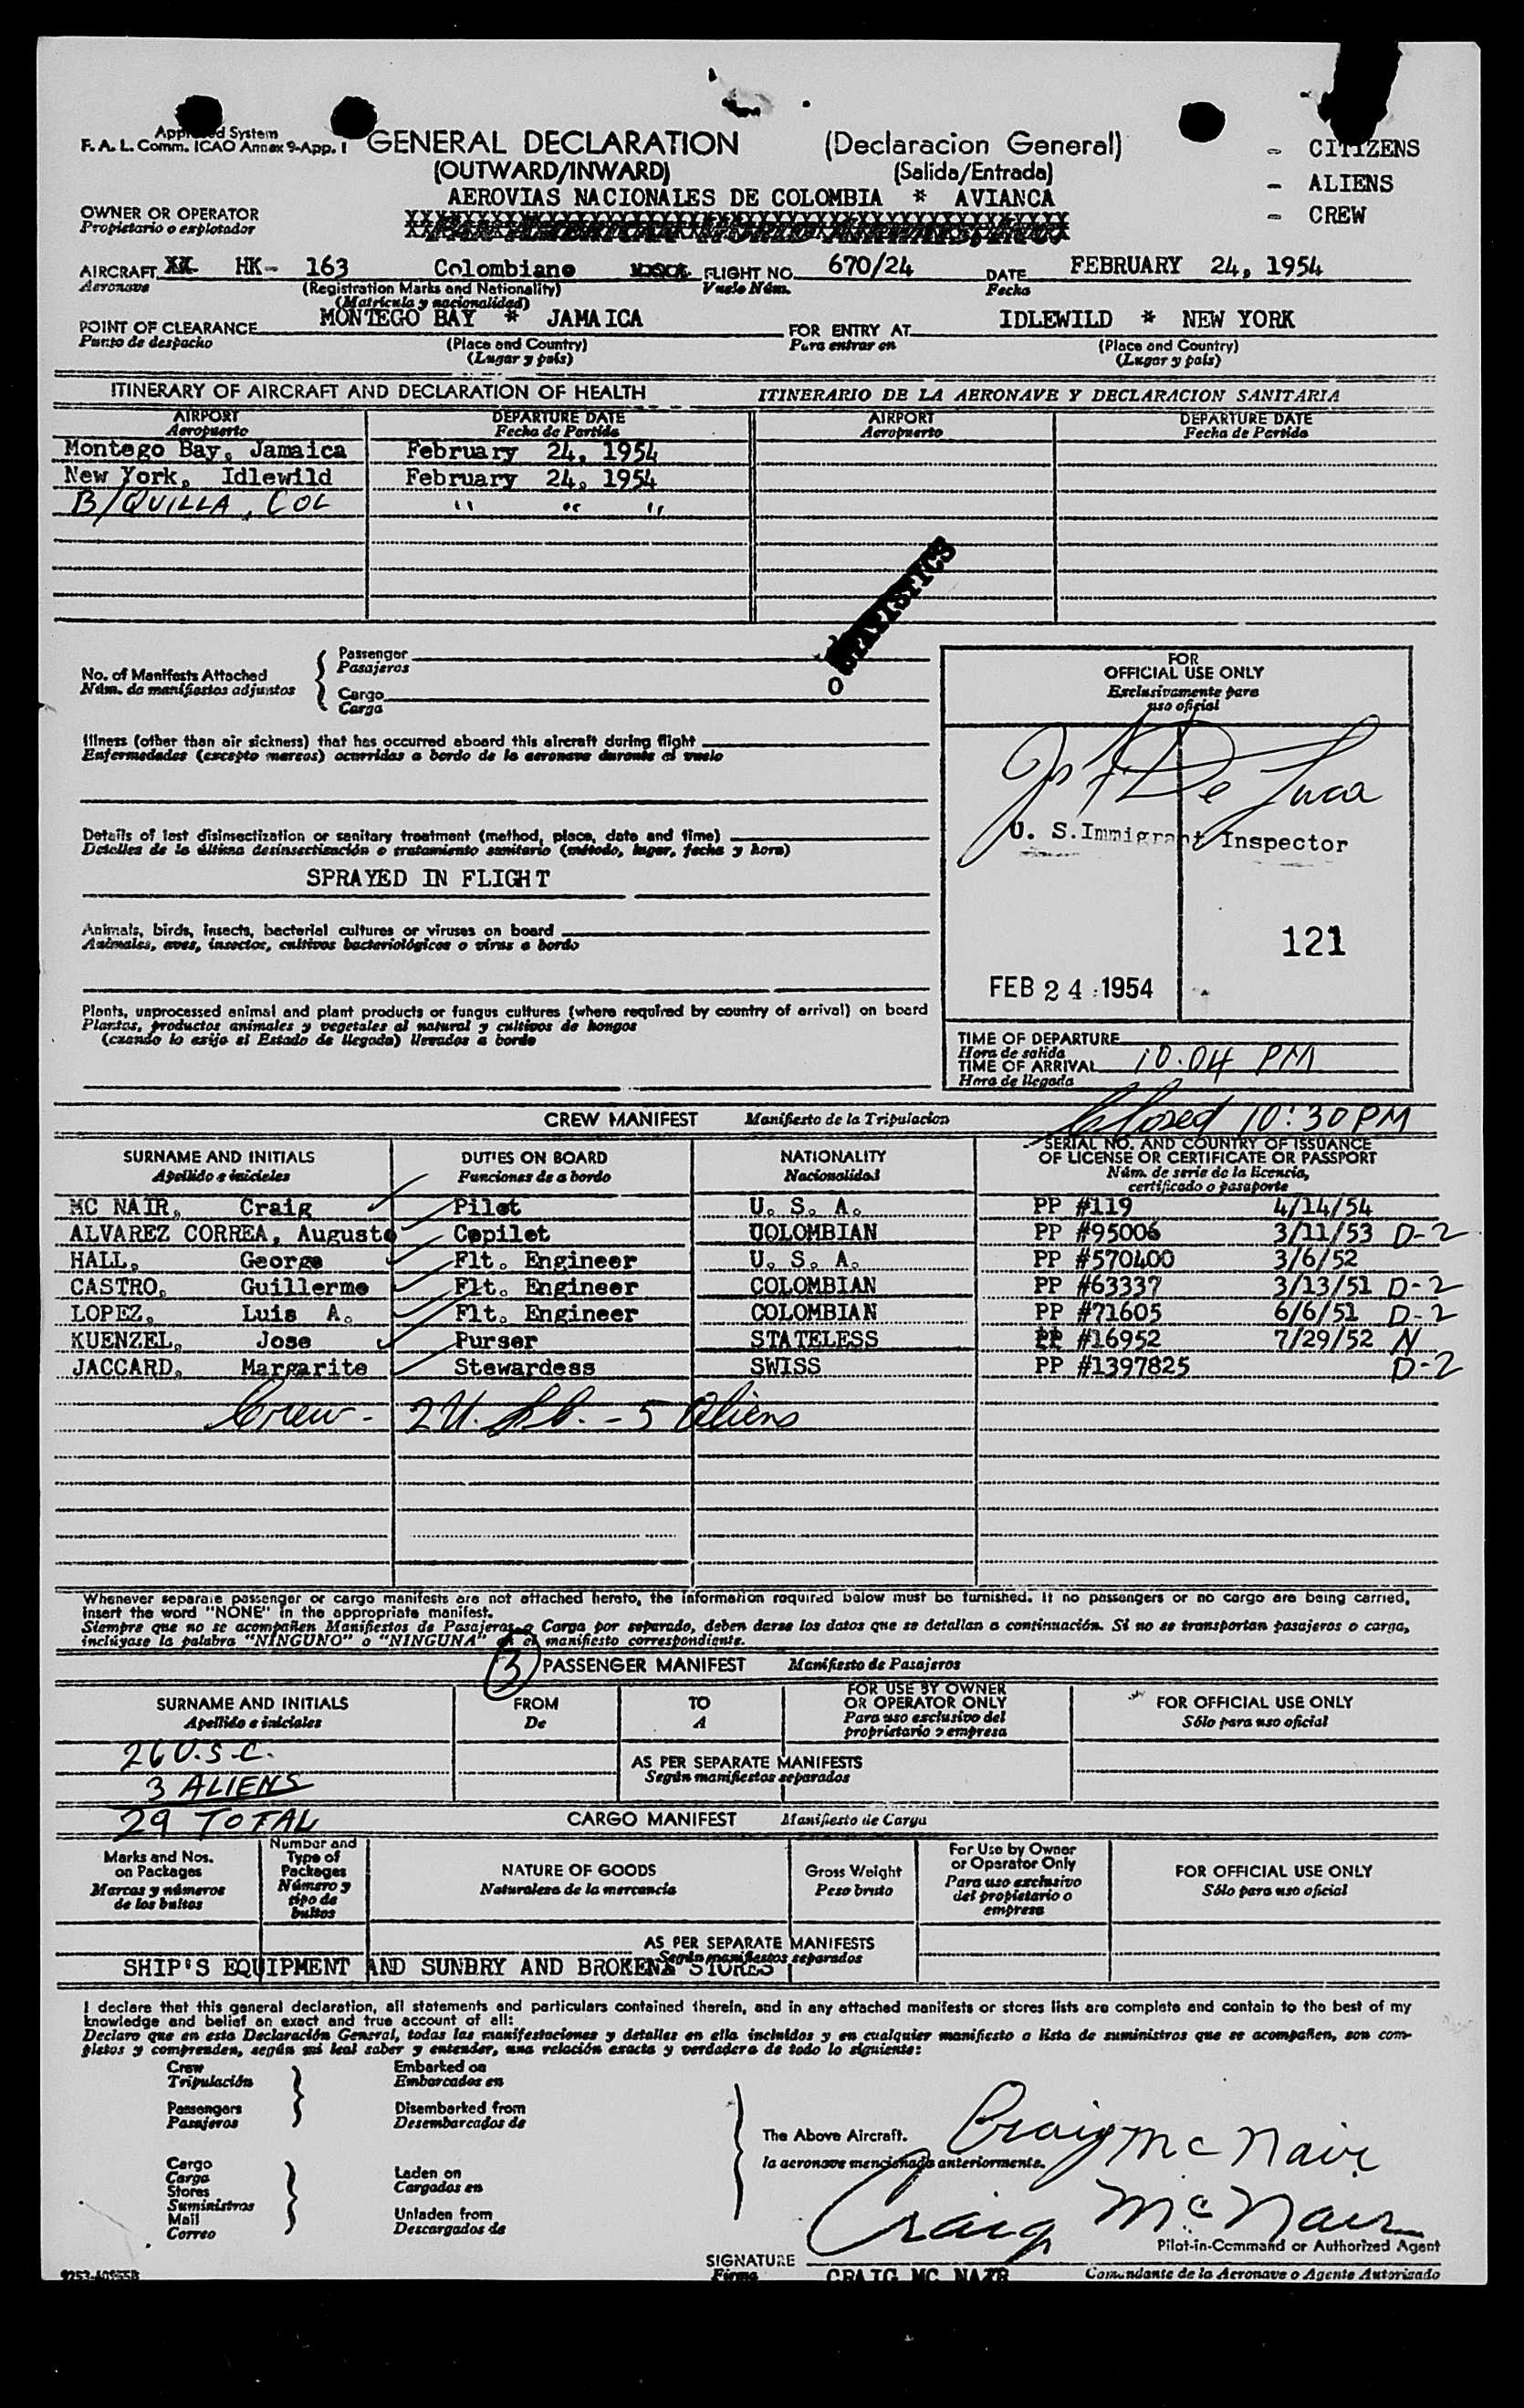 Approved System
F. A. L. Comm. ICAO Annex 9-App. I
GENERAL DECLARATION (Declaracion General)
(OUTWARD/INWARD) (Salida/Entrada)
- CITIZENS
- ALIENS
- CREW
AEROVIAS NACIONALES DE COLOMBIA * AVIANCA
OWNER OR OPERATOR
Propietario o explotador
AIRCRAFT HK- 163 Colombiano FLIGHT NO. 670/24 DATE FEBRUARY 24, 1954
Aeronave (Registration Marks and Nationality) Vuelo Núm. Fecha
(Matrícula y nacionalidad)
POINT OF CLEARANCE MONTEGO BAY * JAMAICA FOR ENTRY AT IDLEWILD * NEW YORK
Punto de despacho (Place and Country) Para entrar en (Place and Country)
(Lugar y país) (Lugar y país)
ITINERARY OF AIRCRAFT AND DECLARATION OF HEALTH ITINERARIO DE LA AERONAVE Y DECLARACION SANITARIA
AIRPORT DEPARTURE DATE AIRPORT DEPARTURE DATE
Aeropuerto Fecha de Partida Aeropuerto Fecha de Partida
Montego Bay, Jamaica February 24, 1954
New York, Idlewild February 24, 1954
B/QUILLA, COL " " "
STATISTICS
No. of Manifests Attached
Núm. de manifiestos adjuntos
Passenger
Pasajeros
Cargo
Carga
O
Illness (other than air sickness) that has occurred aboard this aircraft during flight
Enfermedades (excepto mareos) ocurridas a bordo de la aeronave durante el vuelo
Details of last disinsectization or sanitary treatment (method, place, date and time)
Detalles de la última desinsectización o tratamiento sanitario (método, lugar, fecha y hora)
SPRAYED IN FLIGHT
Animals, birds, insects, bacterial cultures or viruses on board
Animales, aves, insectos, cultivos bacteriológicos o virus a bordo
Plants, unprocessed animal and plant products or fungus cultures (where required by country of arrival) on board
Plantas, productos animales y vegetales al natural y cultivos de hongos
(cuando lo exija el Estado de llegada) llevados a bordo
FOR
OFFICIAL USE ONLY
Exclusivamente para
uso oficial
De Luca
U. S. Immigrant Inspector
121
FEB 24 1954
TIME OF DEPARTURE
Hora de salida
TIME OF ARRIVAL 10:04 PM
Hora de llegada
Closed 10:30 PM
CREW MANIFEST Manifiesto de la Tripulacion
SURNAME AND INITIALS DUTIES ON BOARD NATIONALITY SERIAL NO. AND COUNTRY OF ISSUANCE
OF LICENSE OR CERTIFICATE OR PASSPORT
Apellido e iniciales Funciones de a bordo Nacionalidad Núm. de serie de la licencia,
certificado o pasaporte
MC NAIR, Craig Pilot U. S. A. PP #119 4/14/54
ALVAREZ CORREA, Augusto Copilot COLOMBIAN PP #95006 3/11/53 D-2
HALL, George Flt. Engineer U. S. A. PP #570400 3/6/52
CASTRO, Guillermo Flt. Engineer COLOMBIAN PP #63337 3/13/51 D-2
LOPEZ, Luis A. Flt. Engineer COLOMBIAN PP #71605 6/6/51 D-2
KUENZEL, Jose Purser STATELESS PP #16952 7/29/52 N
JACCARD, Margarite Stewardess SWISS PP #1397825 D-2
Crew - 2 U. S. C. - 5 Aliens
Whenever separate passenger or cargo manifests are not attached hereto, the information required below must be furnished. If no passengers or no cargo are being carried,
insert the word "NONE" in the appropriate manifest.
Siempre que no se acompañen Manifiestos de Pasajeros o Carga por separado, deben darse los datos que se detallan a continuación. Si no se transportan pasajeros o carga,
inclúyase la palabra "NINGUNO" o "NINGUNA" en el manifiesto correspondiente.
3 PASSENGER MANIFEST Manifiesto de Pasajeros
SURNAME AND INITIALS FROM TO FOR USE BY OWNER
OR OPERATOR ONLY FOR OFFICIAL USE ONLY
Apellido e iniciales De A Para uso exclusivo del
propietario o empresa Sólo para uso oficial
26 U.S.C.
AS PER SEPARATE MANIFESTS
Según manifiestos separados
3 ALIENS
29 TOTAL
CARGO MANIFEST Manifiesto de Carga
Marks and Nos.
on Packages
Marcas y números
de los bultos
Number and
Type of
Packages
Número y
tipo de
bultos
NATURE OF GOODS
Naturaleza de la mercancía
Gross Weight
Peso bruto
For Use by Owner
or Operator Only
Para uso exclusivo
del propietario o
empresa
FOR OFFICIAL USE ONLY
Sólo para uso oficial
AS PER SEPARATE MANIFESTS
Según manifiestos separados
SHIP'S EQUIPMENT AND SUNDRY AND BROKEN STORES
I declare that this general declaration, all statements and particulars contained therein, and in any attached manifests or stores lists are complete and contain to the best of my
knowledge and belief an exact and true account of all:
Declaro que en esta Declaración General, todas las manifestaciones y detalles en ella incluidos y en cualquier manifiesto o lista de suministros que se acompañen, son com-
pletos y comprenden, según mi leal saber y entender, una relación exacta y verdadera de todo lo siguiente:
Crew
Tripulación
Passengers
Pasajeros
Embarked on
Embarcados en
Disembarked from
Desembarcados de
Cargo
Carga
Stores
Suministros
Mail
Correo
Laden on
Cargados en
Unladen from
Descargados de
The Above Aircraft.
la aeronave mencionada anteriormente.
Craig McNair
Craig McNair
Pilot-in-Command or Authorized Agent
SIGNATURE
Firma
CRAIG MC NAIR
Comandante de la Aeronave o Agente Autorizado